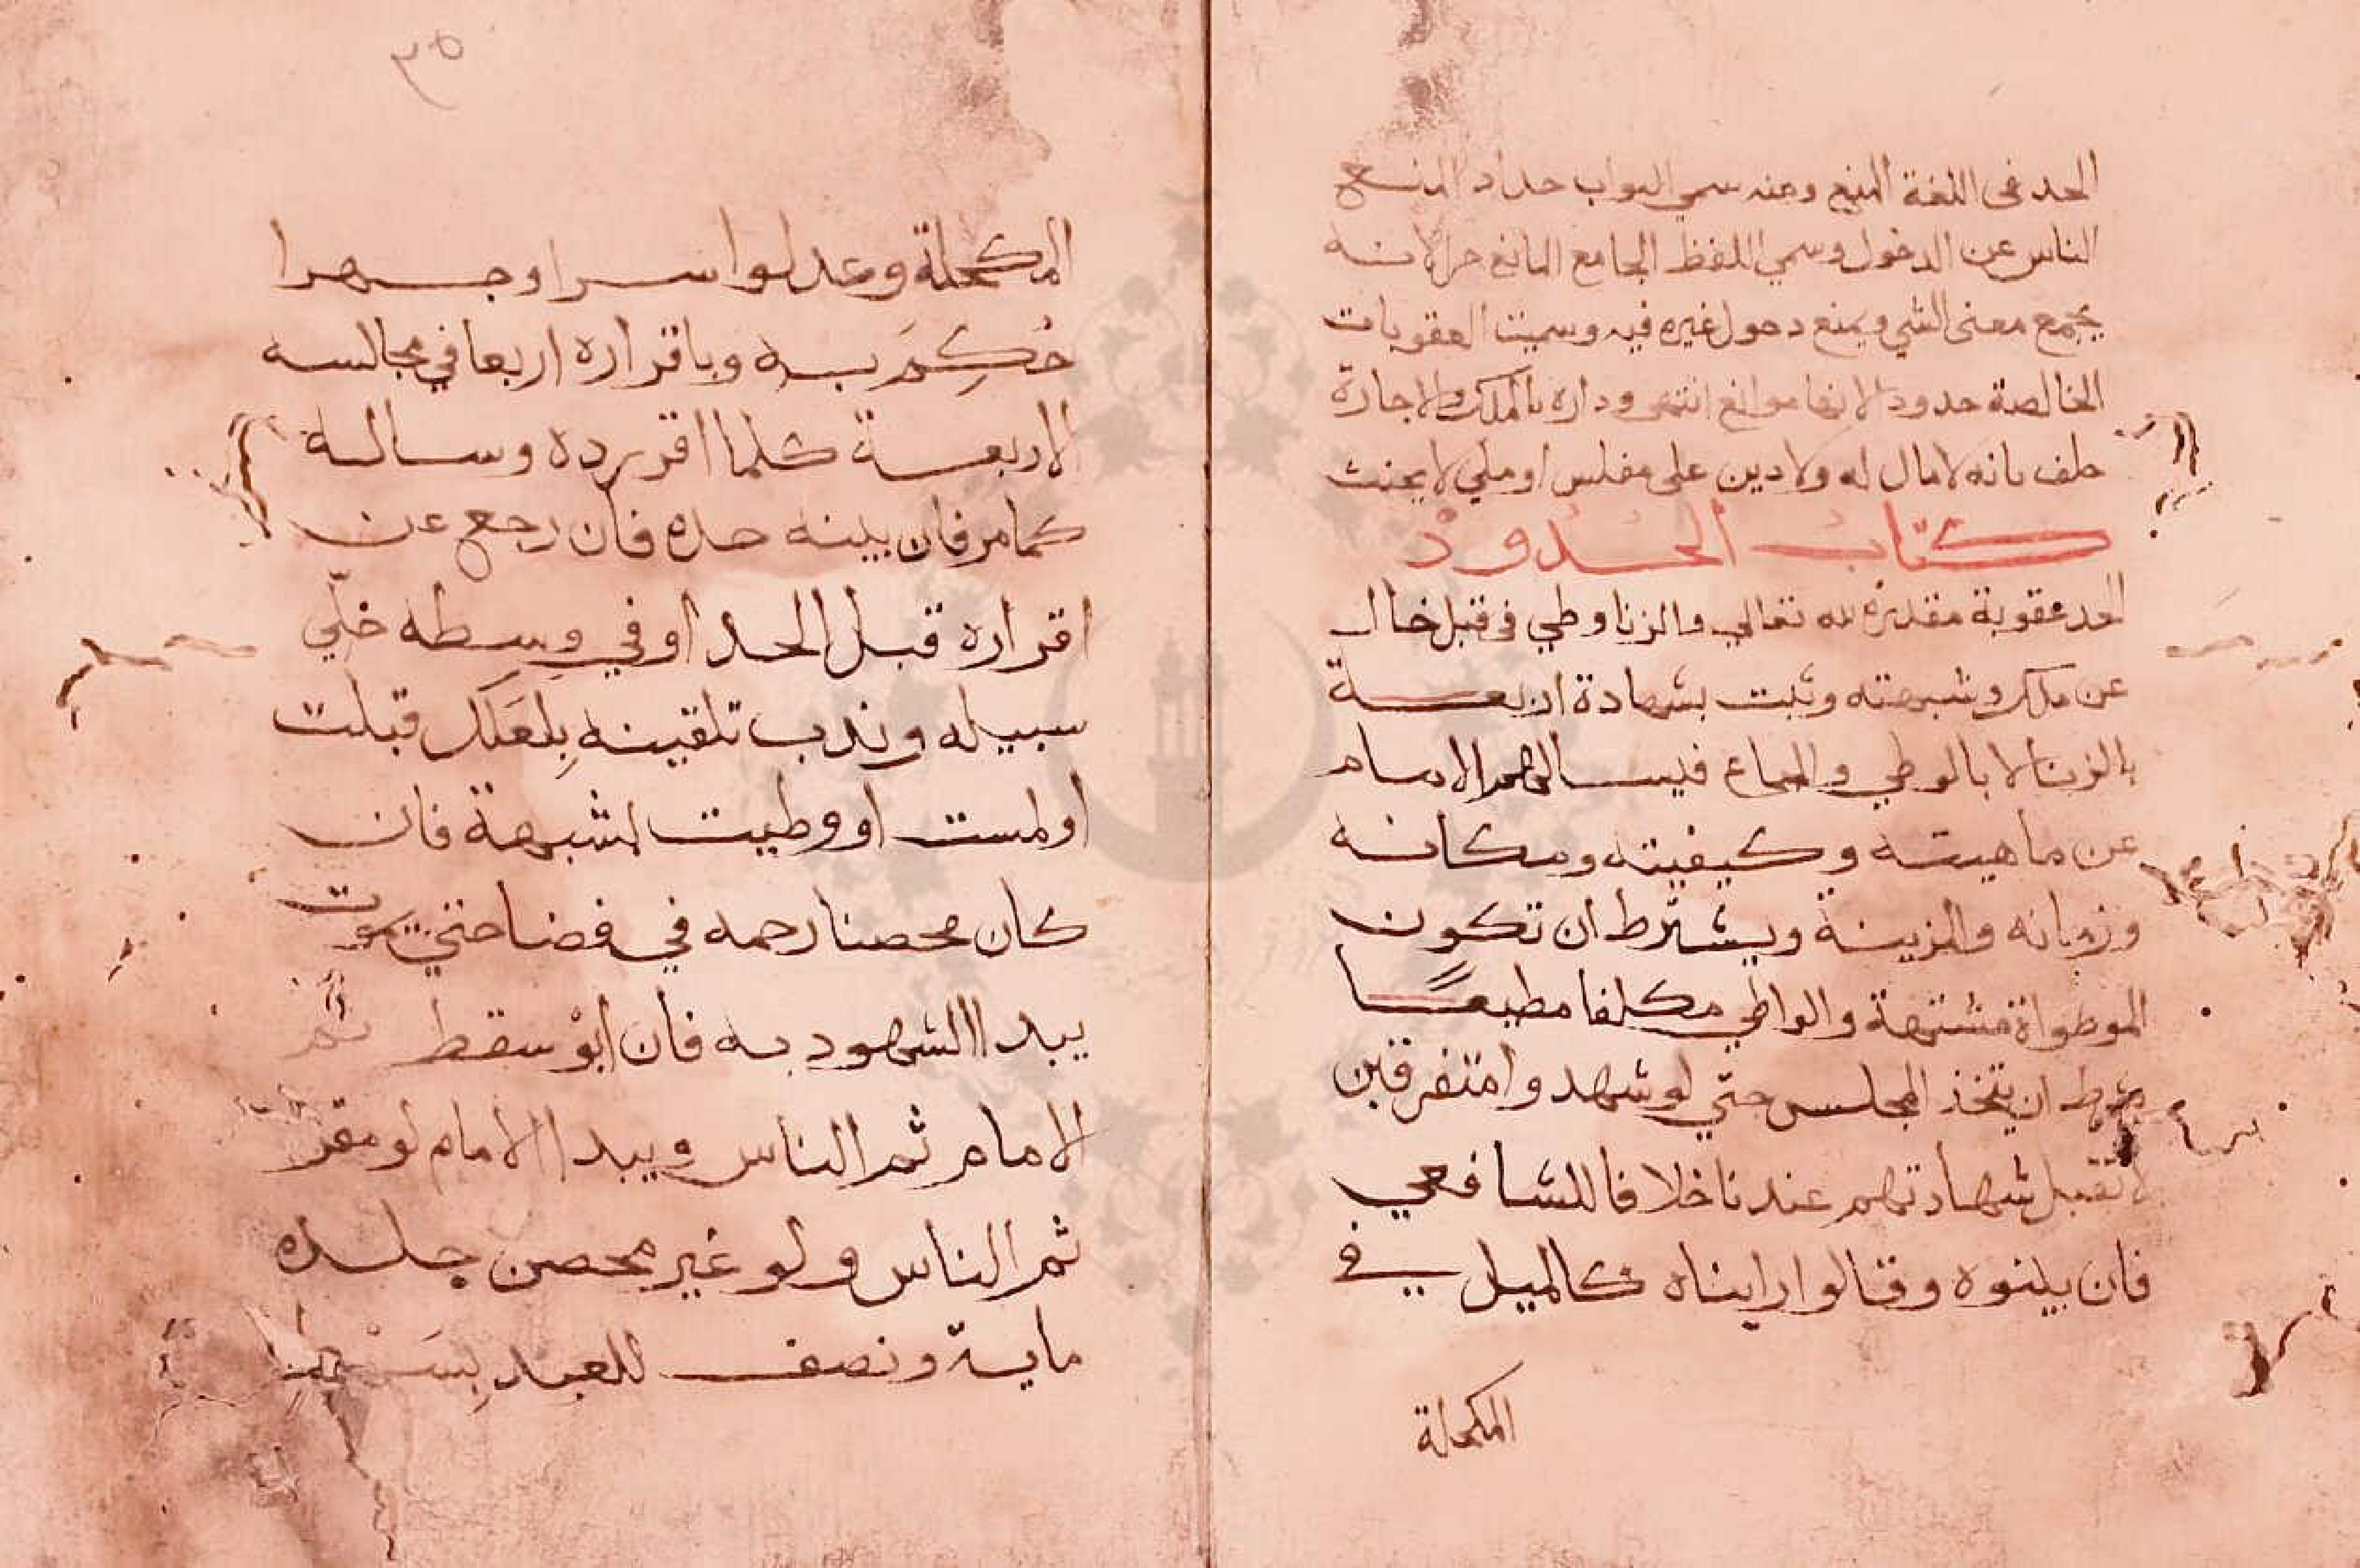 الحد في اللغة المنع ومنه سمي البواب حداد المنع
الناس عن الدخول وسمي اللفظ الجامع المانع حدا لانه
يجمع معنى الشي ويمنع دخول غيره فيه وسميت العقوبات
الخالصة حدود لانها موانع انتهى وداره بالملك والاجارة
حلف بانه لا مال له ولا دين على مفلس او ملي لا يحنث
كتاب الحدود
الحد عقوبة مقدرة لله تعالي والزنا وطي في قبل خال
عن ملك وشبهته ويثبت بشهادة اربعة
بالزنا لا بالوطي والجماع فيسالهم الامام
عن ماهيته وكيفيته ومكانه
وزمانه والمزينة ويشترط ان تكون
الموطواة مشتهة والواطي مكلفا مطيعا
يشرط ان يتخذ المجلس حتي لو شهدوا متفرقين
لا تقبل شهادتهم عندنا خلافا للشافعي
فان بينوه وقالوا رايناه كالميل في
المكحلة
٣٥
المكحلة وعدلوا سرا وجهرا
حُكِمَ به وباقراره اربعا في مجالسه
الاربعة كلما اقر رده وساله
كما مر فان بينه حده فان رجع عن
اقراره قبل الحد او في وسِطه خلّي
سبيله وندب تلقينه بِلعَلك قبلت
او لمست او وطيت لشبهة فان
كان محصنا رحمه في فضا حتي يموت
يبدا الشهود به فان ابوْ سقط ثم
الامام ثم الناس ويبدا الامام لو مقر
ثم الناس ولو غير محصن جلده
ماية ونصف للعبد بِسَوْط